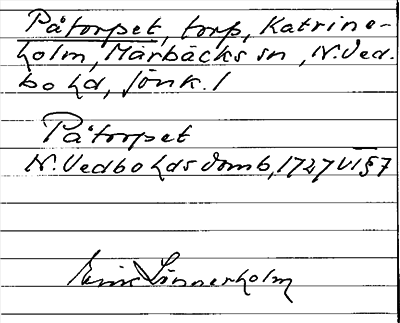 Påtorpet, torp, Katrine-
holm, Marbäcks sn, N. Ved-
bo hd, Jönk. l
Påtorpet
N. Vedbo hds domb, 1727 VI § 7
Erik Linnerholm